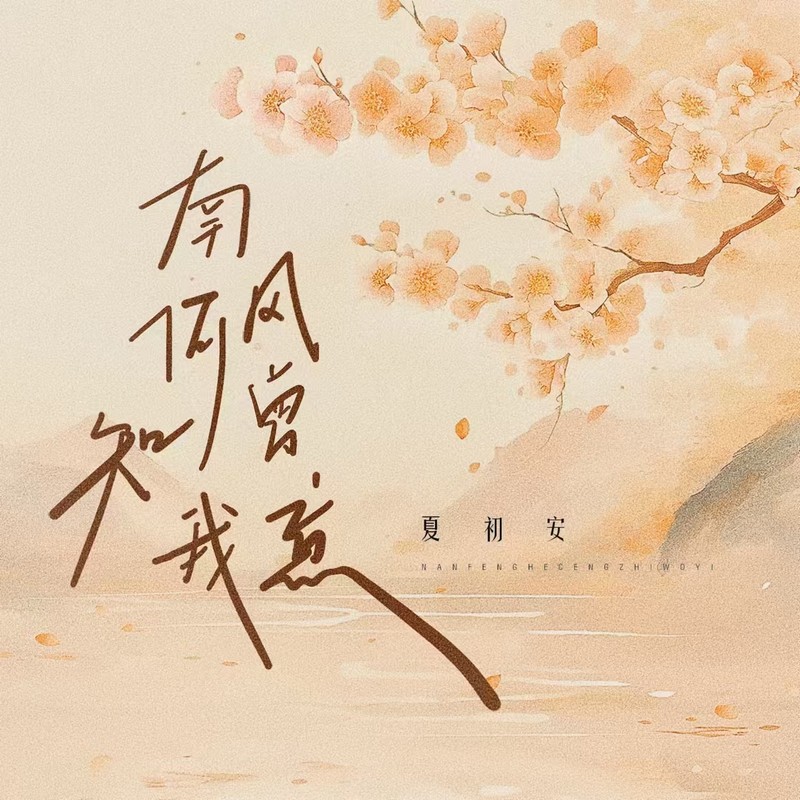 南风何曾知我意
夏初安
NANFENGHECENGZHIWOYI